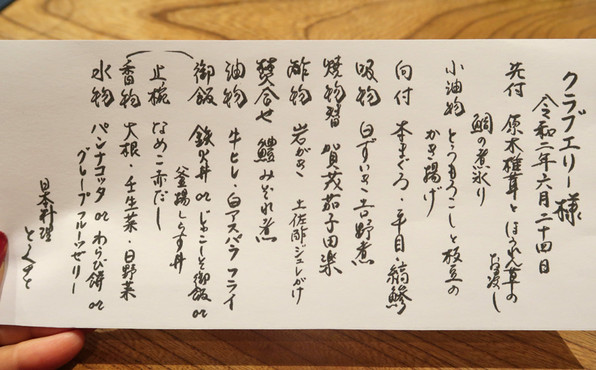 クラブエリー様
令和二年六月二十四日
先付 原木椎茸とほうれん草の
お浸し
鯛の煮氷り
小油物 とうもろこしと枝豆の
かき揚げ
向付 本まぐろ・平目・縞鯵
吸物 白ずいき吉野煮
焼物替 賀茂茄子田楽
酢物 岩がき 土佐酢ジュレがけ
焚合せ 鱧みぞれ煮
油物 牛ヒレ・白アスパラ フライ
御飯 鉄火丼 or じゃこしそ御飯 or
釜揚しらす丼
止椀 なめこ赤だし
香物 大根・壬生菜・日野菜
水物 パンナコッタ or わらび餅 or
グレープフルーツゼリー
日本料理
とくを